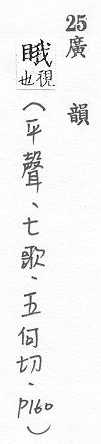 25廣韻
睋視也（平聲、七歌、五何切、P160）